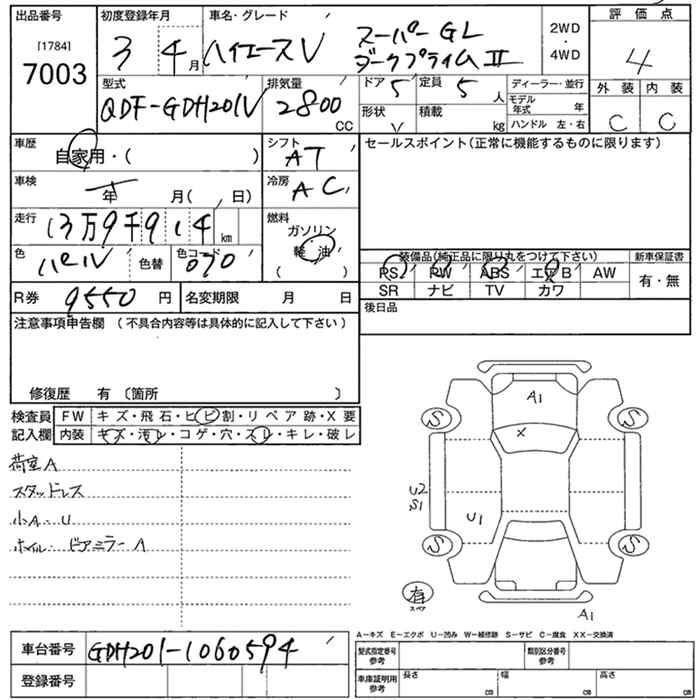 出品番号 初度登録年月 車名・グレード 評価点
[1784]
7003
3 4月 ハイエースV スーパーGL ダークプライムII 2WD・4WD 4
外装 内装
C C
型式 排気量 ドア 定員 ディーラー・並行
QDF-GDH201V 2800CC 5 5人 モデル年式 年
形状 V 積載 kg ハンドル 左・右
車歴 自家用・( ) シフト AT セールスポイント(正常に機能するものに限ります)
車検 年 月( 、日) 冷房 AC
走行 13万9千914km 燃料 ガソリン 軽油 ( )
色 パール 色替 色コード 070
装備品(純正品に限り丸をつけて下さい) 新車保証書
PS PW ABS エアB AW 有・無
SR ナビ TV カワ
R券 9550円 名変期限 月 日 後日品
注意事項申告欄 (不具合内容等は具体的に記入して下さい)
修復歴 有 〔箇所 〕
検査員記入欄 FW キズ・飛石・ヒビ割・リペア跡・X要
内装 キズ・汚レ・コゲ・穴・スレ・キレ・破レ
荷室A
スタッドレス
小A・U
ホイル・ドアミラーA
A1
X
S S
U2
S1
U1
S S
有
スペア
A1
A-キズ E-エクボ U-凹み W-補修跡 S-サビ C-腐食 XX-交換済
車台番号 GDH201-1060594
登録番号
型式指定番号 参考 類別区分番号 参考
車庫証明用 参考 長さ cm 幅 cm 高さ cm